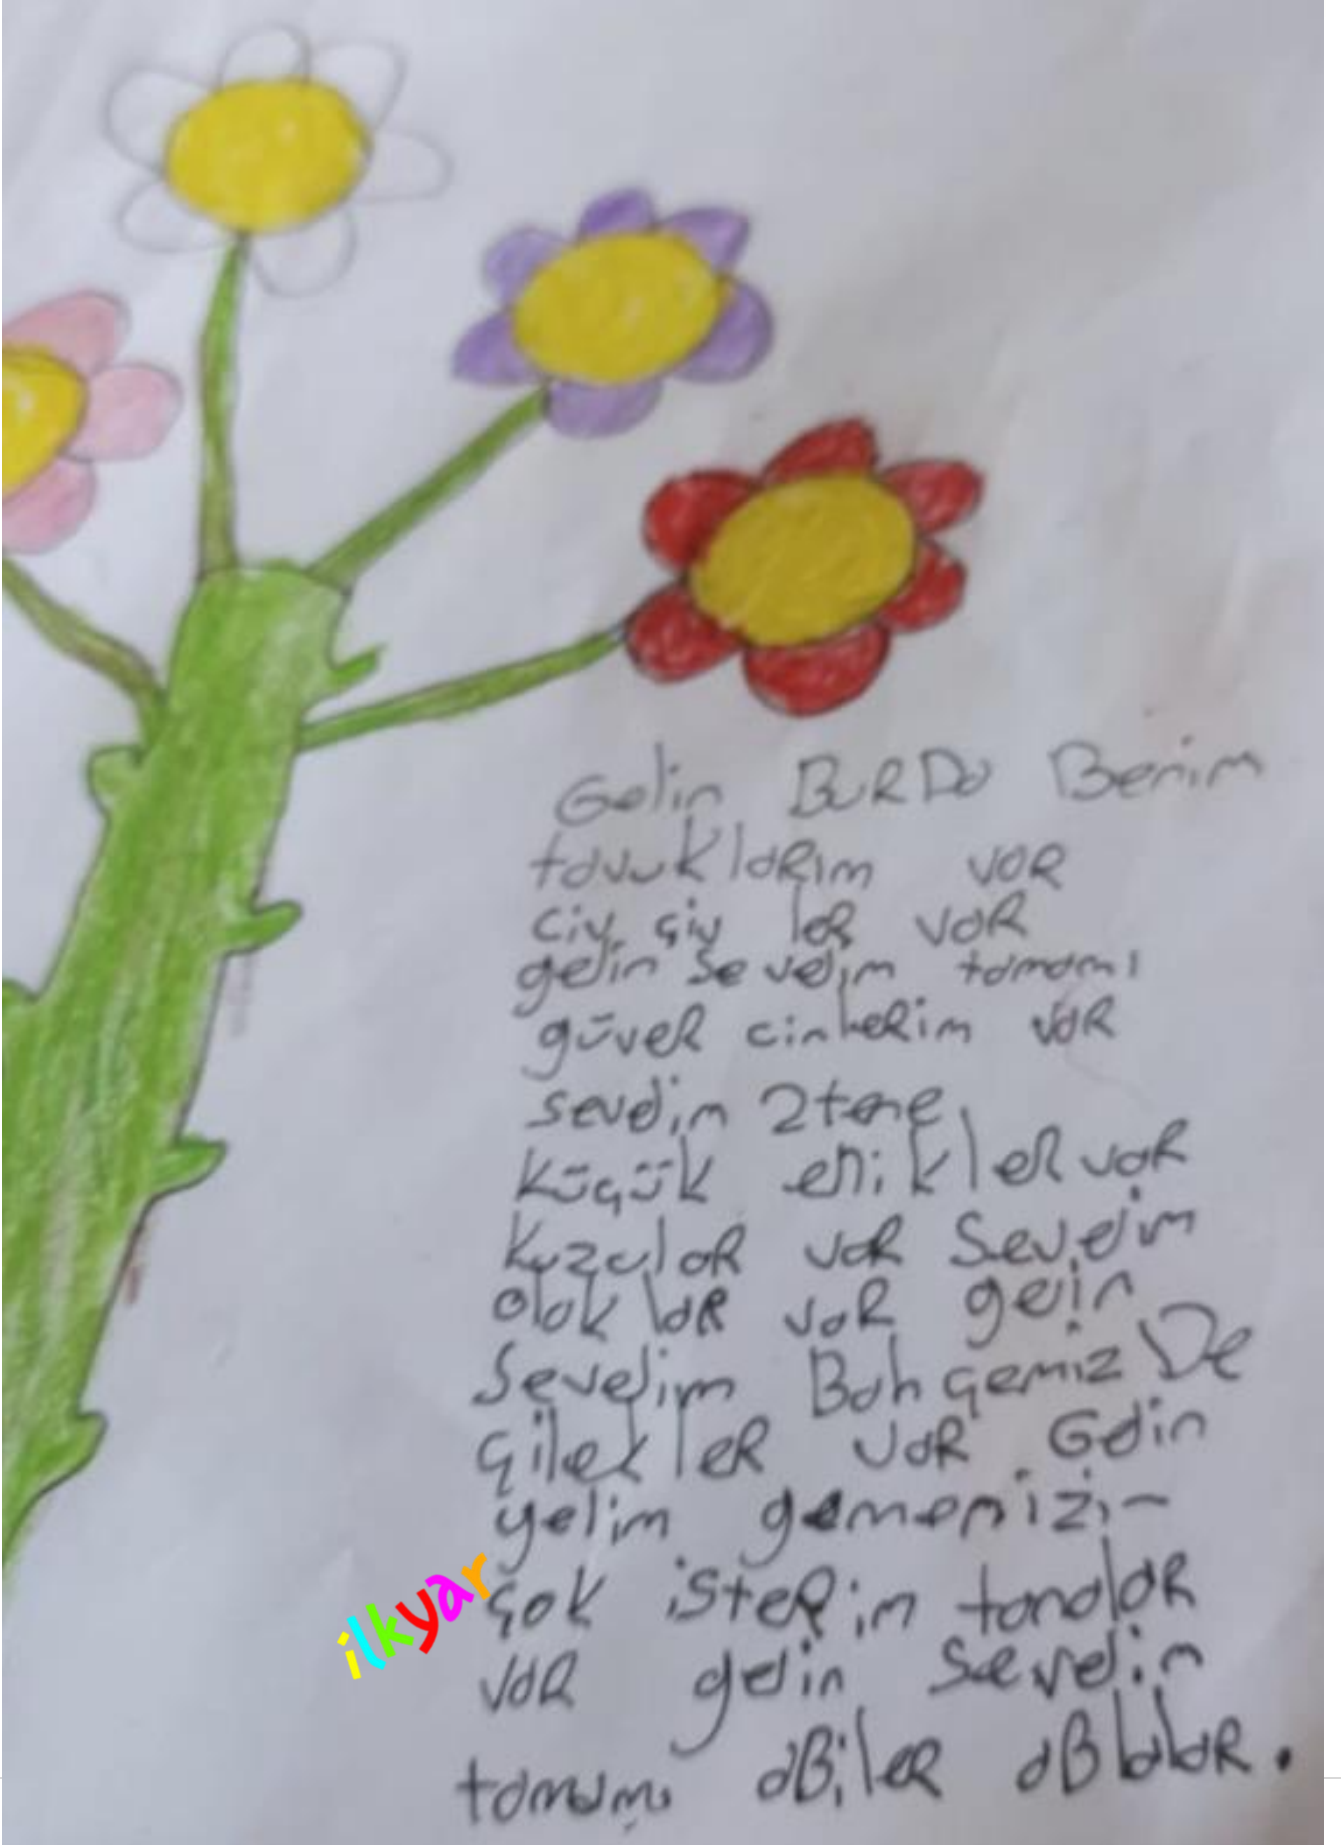 Gelin BURDa Benim
tavuklaRım vaR
civ çiv leR vaR
gelin sevelim tamamı
güveR cinleRim vaR
sevelim 2 tane
küçük enikleR vaR
kuzulaR vaR Sevelim
olaklaR vaR gelin
Sevelim Bahçemiz De
çilekleR vaR Gelin
yelim gememizi-
çok isteRim tanalaR
vaR gelin Sevelim
tamamı aBileR aBlalaR.
ilkyar